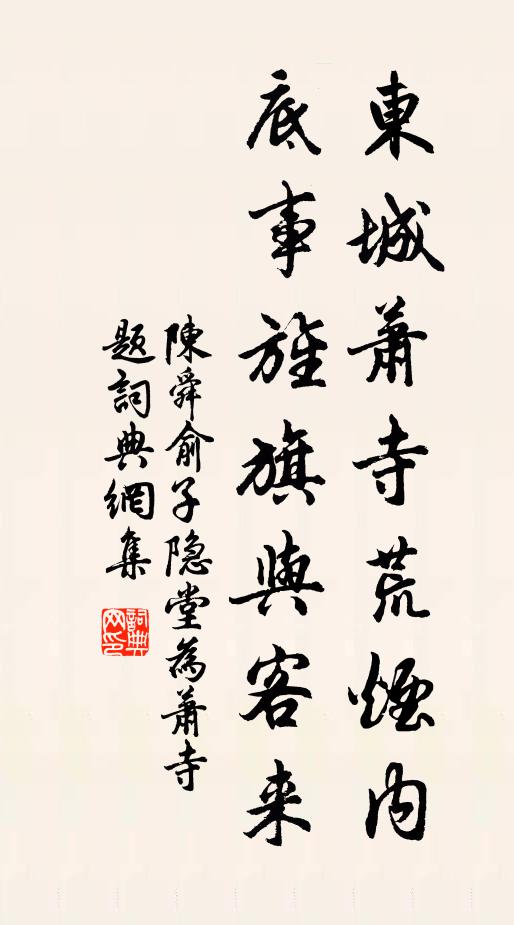 東城蕭寺荒煙内
底事旌旗與客来
陳舜俞子隐堂為蕭寺
題詞典網集
詞典網印